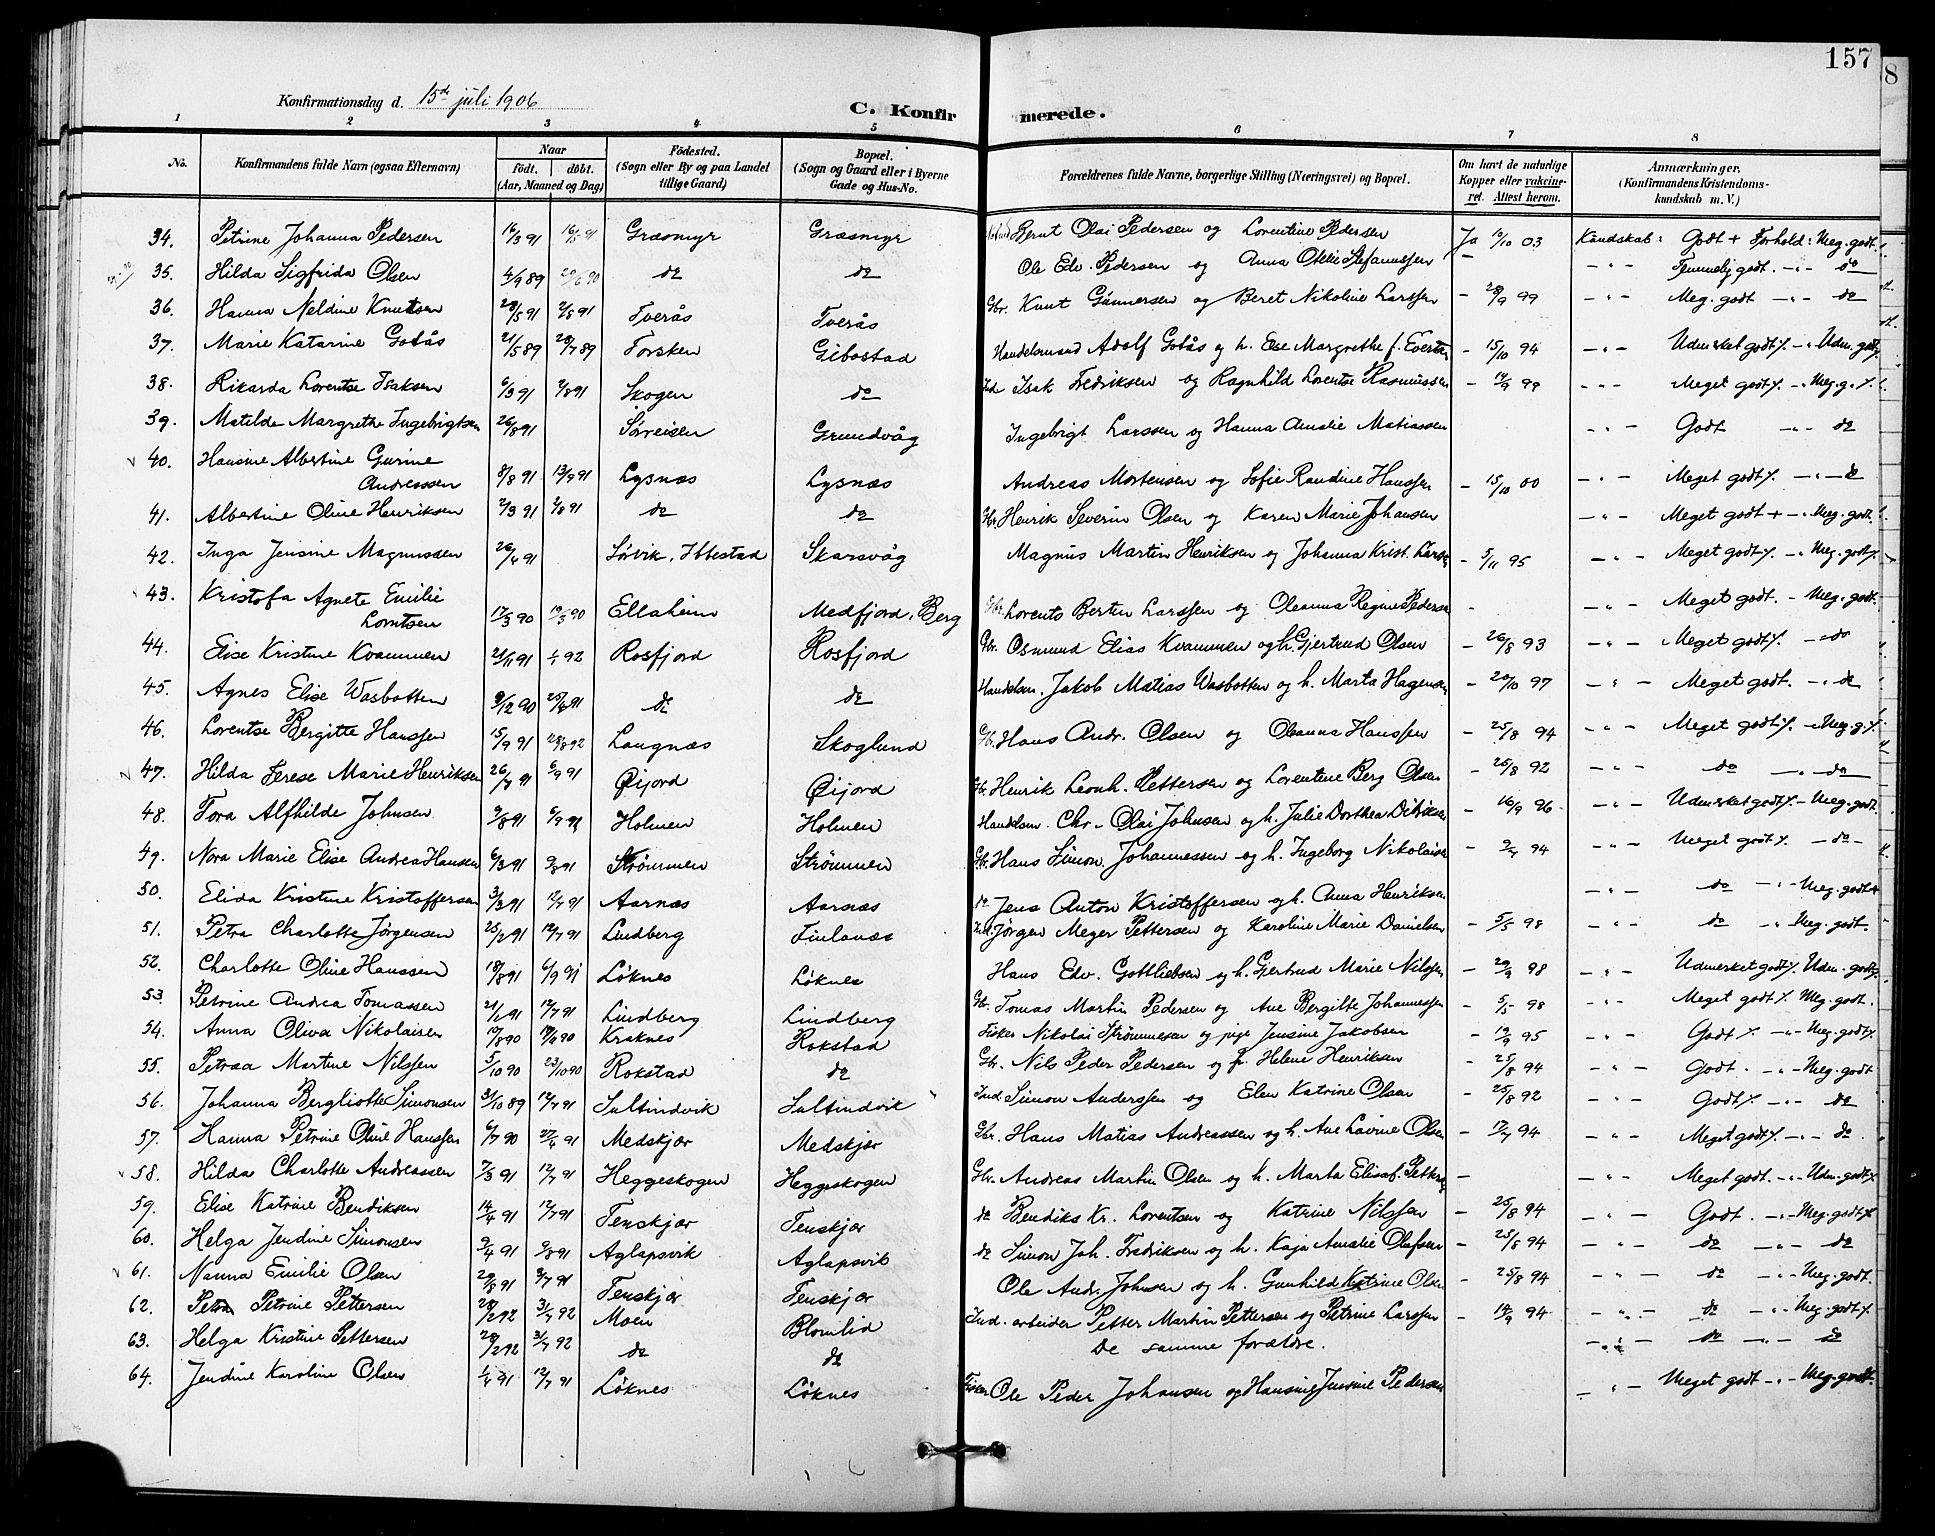 157
8
Konfirmationsdag d. 15de juli 1906
C. Konfirmerede.
1 2 3 4 5 6 7 8
No. Konfirmandens fulde Navn (ogsaa Efternavn) Naar født. døbt. (Aar, Maaned og Dag) Födested. (Sogn eller By og paa Landet tillige Gaard) Bopæl. (Sogn og Gaard eller i Byerne Gade og Hus-No. Forældrenes fulde Navne, borgerlige Stilling (Næringsvei) og Bopæl. Om havt de naturlige Kopper eller vakcineret. Attest herom. Anmærkninger. (Konfirmandens Kristendomskundskab m. V.)
34. Petrine Johanna Pedersen 16/3 91 16/5 91 Græsmyr Græsmyr Bernt Olai Pedersen og Lorentine Pedersen Ja 10/10 03 Kundskab: Godt + Forhold: Meg. godt.
35. Hilda Sigfrida Olsen 4/9 89 29/6 90 do do Ole Edv. Pedersen og Anna Stefanussen - " - Temmelig godt. - " - do
36. Hanna Neldine Knutsen 28/5 91 2/8 91 Tverås Tverås Gbr. Knut Gunnersen og Beret Nikoline Larssen - 28/9 99 - " - Meg. godt - " - do
37. Marie Katarine Gotås 21/5 89 28/7 89 Torsken Gibostad Handelsmand Adolf Gotås og h. Else Margrethe f. - 15/10 94 - " - Udmerket godt% - " Udm. godt%
38. Rikarda Lorentse Isaksen 6/3 91 2/8 91 Skogen do Ind Isak Fredriksen og Ragnhild Lorentse Rasmussen - 14/9 99 - " - Meget godt% - " Meg. g. %
39. Matilde Margrethe Ingebrigtsen 26/8 91 Sørreisen Grundvåg Ingebrigt Larssen og Hanna Amalie Matiassen - " - Godt - " - do
40. Hansine Albertine Gurine
Andreassen 8/8 91 13/9 91 Lysnæs Lysnæs Andreas Mortensen og Sofie Randine Hanssen - 15/10 00 - " - Meget godt% - " - do
41. Albertine Oline Henriksen 2/3 91 2/8 91 do do Gbr Henrik Severin Olsen og Karen Marie Johansen - " - Meget godt + - " Meg. godt.
42. Inga Jensine Magnussen 26/4 91 Sørvik, Ibbestad Skarsvåg Magnus Martin Henriksen og Johanna Krist. Larss - 5/11 95 - " - Meget godt% - " Meg. godt%
43. Kristofa Agnete Emilie
Lorntsen 17/3 90 19/5 90 Ellaheim Medfjord, Berg Gbr. Lorents Bertin Larssen og Oleanna Regine Pedersen - - " - Meget godt. - Meg. godt.
44. Elise Kristine Kvammen 21/11 91 1/1 92 Rosfjord Rosfjord Gbr. Osmund Elias Kvammen og h. Gjertrud Olsen - 26/8 93 - " - Meget godt% - " do
45. Agnes Elise Wasbotten 9/12 90 25/4 91 do do Handelsm. Jakob Matias Wasbotten og h. Marta Hagensen - 20/10 97 - " - Meget godt. - " do
46. Lorentse Bergitte Hanssen 15/9 91 28/8 92 Langnæs Skoglund Gbr. Hans Andr. Olsen og Oleanna Hanssen - 25/8 94 - " - Meget godt% - " Meg. g. %
47. Hilda Terese Marie Henriksen 26/7 91 6/9 91 Øijord Øijord Gbr. Henrik Leonh. Pettersen og Lorentine Berg Olsen - 25/8 92 - " - do - " - do
48. Tora Alfhilde Johnsen 9/8 91 6/9 91 Holmen Holmen Handelsm. Chr. Olai Johnsen og h. Julie Dorthea Didriksen - 16/9 96 - " - Udmerket godt% - Meg. godt
49. Nora Marie Elise Andrea Hansen 6/3 91 2/8 91 Strømmen Strømmen Gbr. Hans Simon Johannessen og h. Ingeborg Nikolaisen - 2/7 94 - " - Meget godt% - do -
50. Elida Kristine Kristoffersen 3/3 91 12/7 91 Aarnæs Aarnæs do Jens Anton Kristoffersen og h. Anna Henriksen - " - do - " - Meg. godt+
51. Petra Charlotte Jørgensen 25/2 91 12/7 91 Lindberg Finlanæs Ind. Jørgen Meyer Pettersen og Karoline Marie Danielsen - 5/5 98 - " - do - " Meg. godt.
52. Charlotte Oline Hanssen 18/8 91 6/9 91 Løknes Løknes Hans Edv. Gottliebsen og h. Gjertrud Marie Nilssen - 29/9 98 - " - Udmerket godt% Udm. godt%
53. Petrine Andrea Tomassen 21/2 91 12/7 91 Lindberg Lindberg Gbr. Tomas Martin Pedersen og Ane Bergitte Johannessen - 5/5 98 - " - Meget godt% Meg. godt.
54. Anna Oliva Nikolaisen 17/8 90 19/10 90 Kraknes Rokstad Fisker Nikolai Strømmesen og pige Jensine Jakobsen - 19/9 95 - " - Godt % - " Meg. godt%
55. Petræa Martine Nilssen 5/10 90 23/10 90 Rokstad do Gbr. Nils Peder Pedersen og h. Helene Henriksen - 25/8 94 - " - Godt. - " Meg. godt
56. Johanna Bergliotte Simonsen 31/10 89 12/7 91 Sultindvik Sultindvik Ind Simon Anderssen og Elen Katrine Olsen - 25/8 92 - " - Godt% - " - do
57. Hanna Petrine Oline Hanssen 6/7 90 27/6 91 Medskjær Medskjær Gbr. Hans Matias Andreassen og h. Ane Lovine Olsen - 17/7 94 - " - Meget godt% - " - do
58. Hilda Charlotte Andreassen 7/3 91 12/7 91 Heggeskogen Heggeskogen Gbr. Andreas Martin Olsen og h. Marta Elisaf. - - " - Meget godt. - " Udm. godt%
59. Elise Katrine Bendiksen 14/4 91 12/7 91 Tenskjær Tenskjær do Bendiks Kr. Lorentsen og Katrine Nilssen - 25/8 94 - " - Godt. - " Meg. godt%
60. Helga Jendine Simonsen 9/4 91 9/8 91 Aglapsvik Aglapsvik do Simon Joh. Fredriksen og h. Kaja Amalie Olufsen - 25/8 94 - " - do - " - do
61. Nanna Emilie Olsen 29/8 91 9/7 91 Tenskjær Tenskjær Ole Andr. Johnsen og h. Gunhild Katrine Olsen - 25/8 94 - " - do - " - Meg. godt.
62. Petra Petrine Pettersen 28/2 92 31/7 92 Moen Blomlid Ind. arbeider Petter Martin Pettersen og Petrine Larssen - 14/9 94 - " - do - " Meg. godt%
63. Helga Kristine Pettersen 28/2 92 31/7 92 do do De samme forældre. - " - do - " - do
64. Jendine Karoline Olsen 1/4 91 12/7 91 Løknes Løknes Fisker Ole Peder Johansen og Hansine Jensine Pedersen - " - Meget godt - " - Meg. godt.